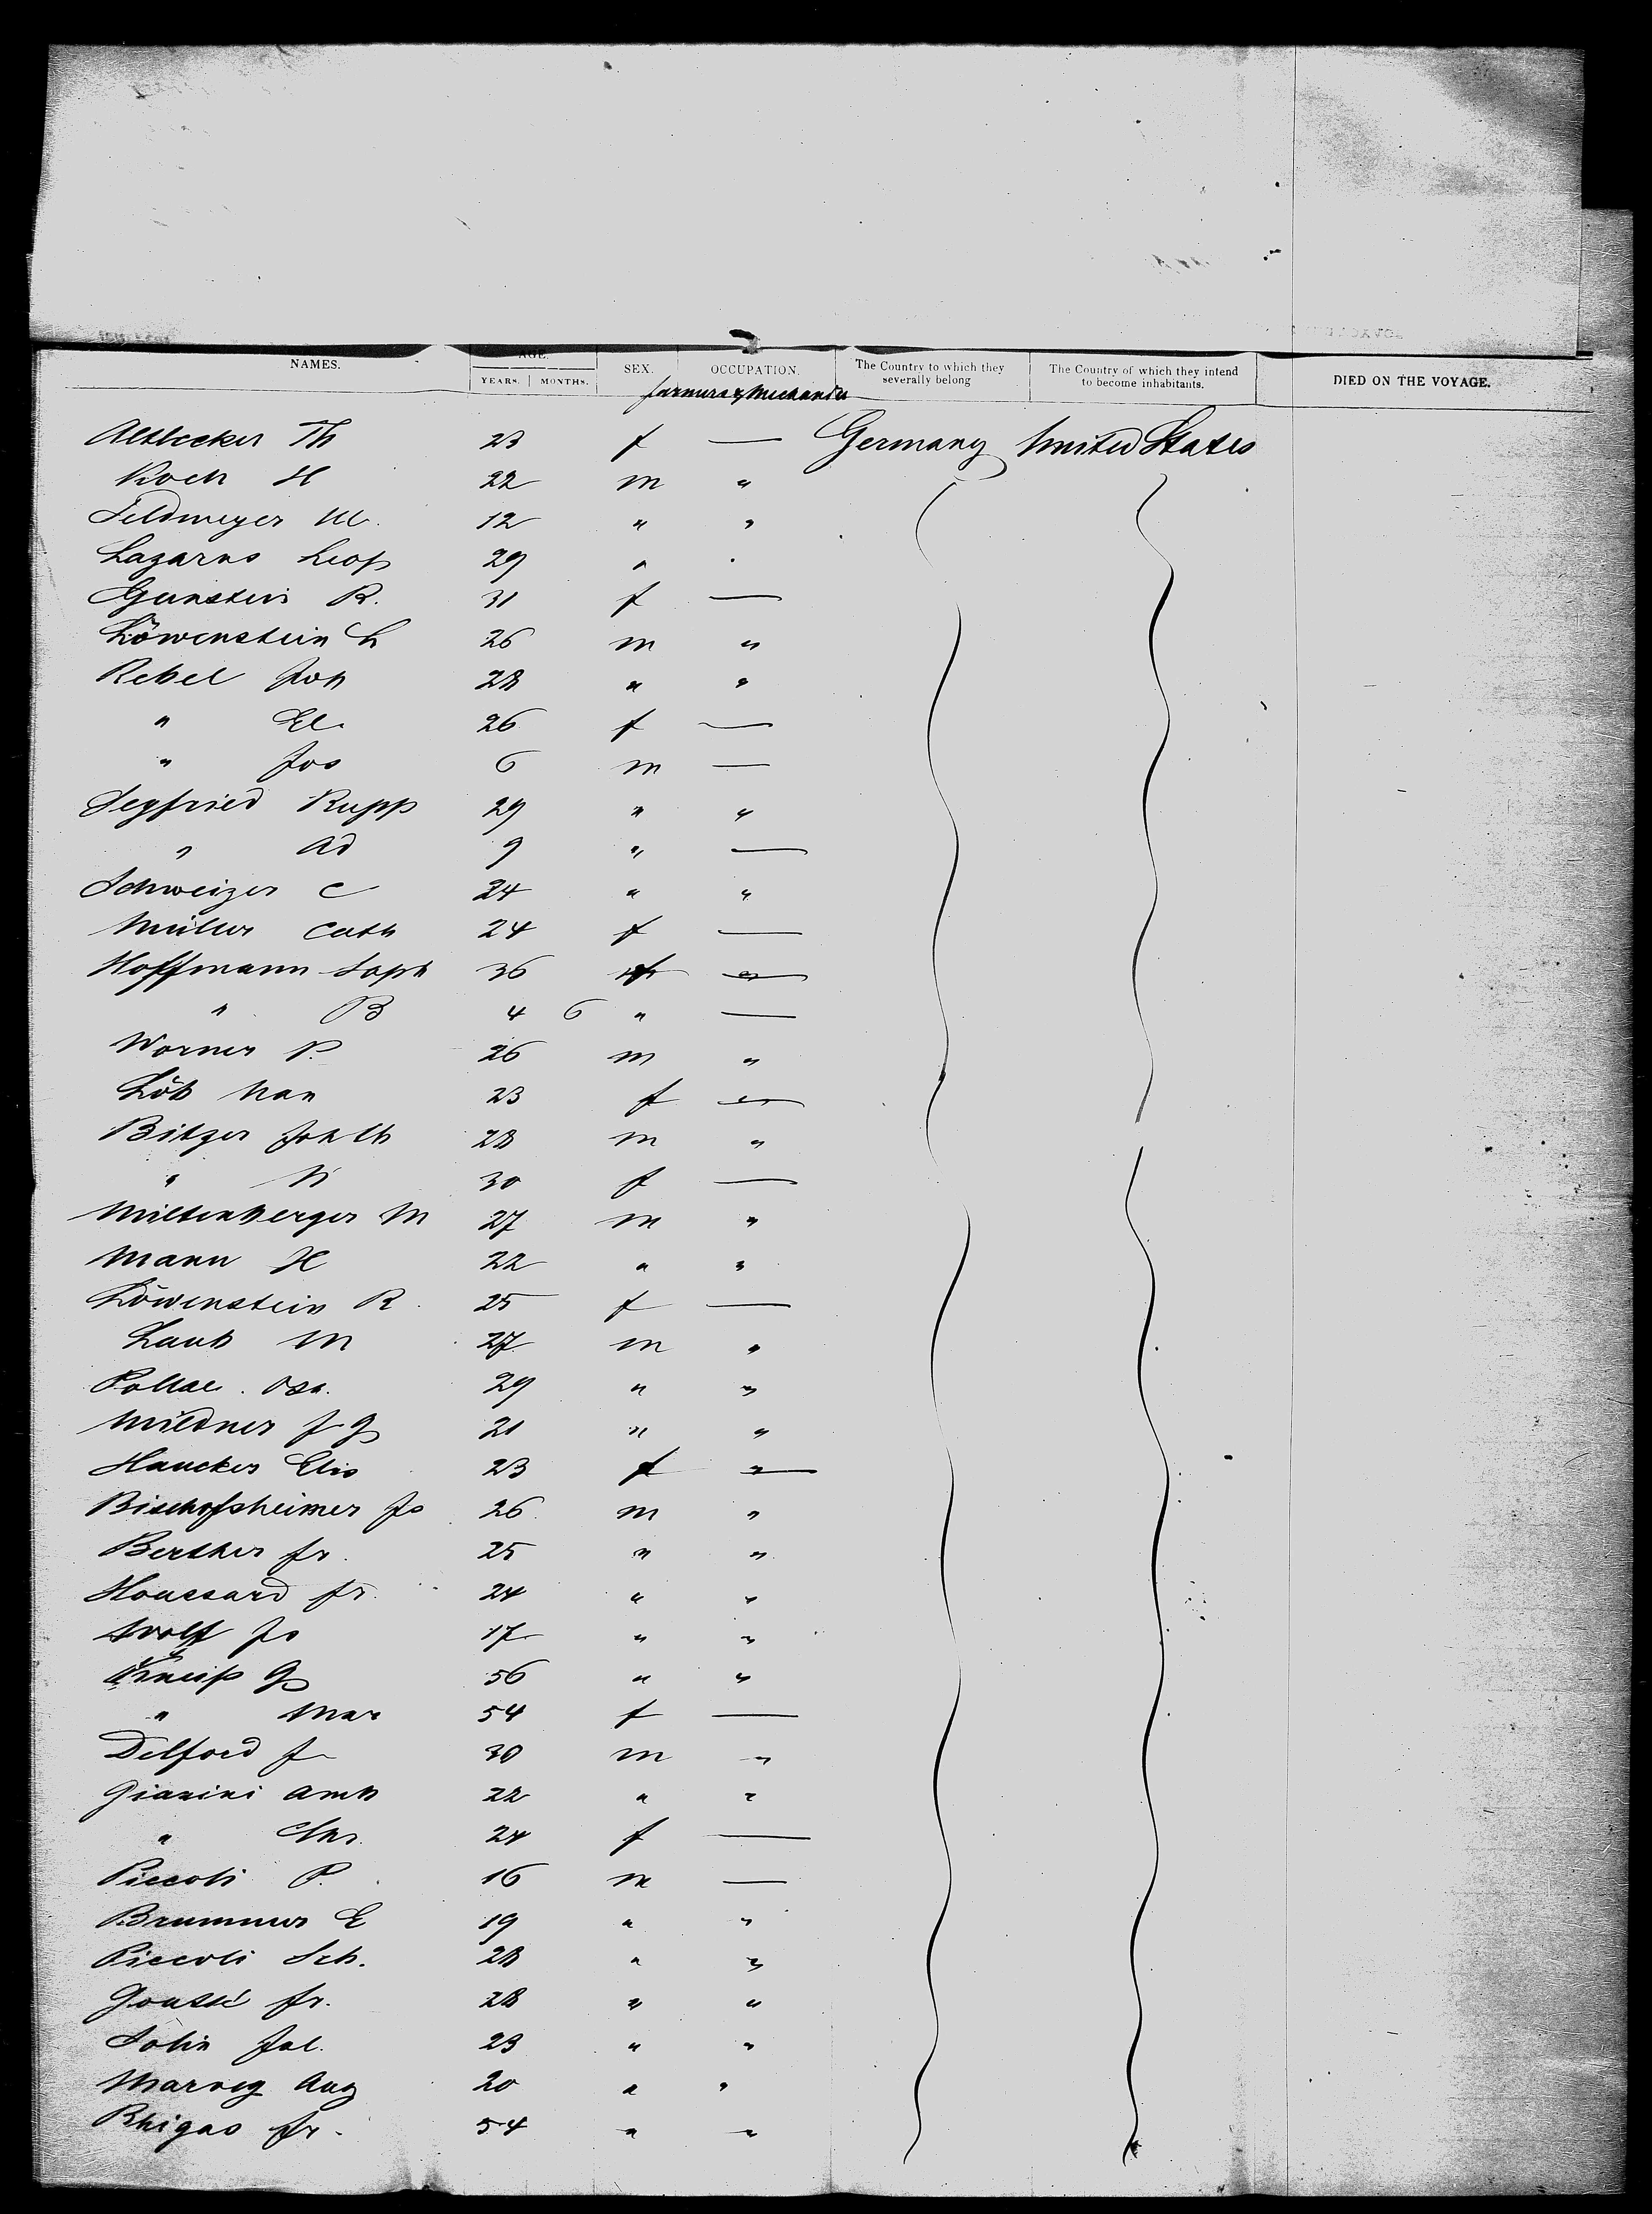 NAMES. AGE. YEARS. | MONTHS. SEX. OCCUPATION. The Country to which they severally belong The Country of which they intend to become inhabitants. DIED ON THE VOYAGE.
farmers & Mechanics
Altbecker Th 23 f — Germany United States
Koch H 22 m "
Feldmeyer W. 12 " "
Lazarus Leop 29 " "
Gunstein R. 31 f —
Löwenstein L 26 m "
Rebel Joh 28 " "
" El. 26 f —
" Jos 6 m —
Segfried Rupp 29 " "
" Ad 9 " —
Schweizer C 24 " "
Müller Cath 24 f —
Hoffmann Soph 36 f —
" B 4 6 " —
Worner P. 26 m "
Löb Nan 23 f —
Bitzer Joh 28 m "
" N 30 f —
Miltenberger M 27 m "
Mann H 22 " "
Löwenstein R. 25 f —
Laub M 27 m "
Pollac. 29 " "
Mildner J G 21 " "
Haucker Elis 23 f —
Bischofsheimer Js 26 m "
Berther Fr. 25 " "
Houssard Fr. 24 " "
Wolff Js 17 " "
Kneip G 56 " "
" Mar 54 f —
Delfoed J 30 m "
Gianini Amb 22 " "
" Chr. 24 f —
Piccoli P. 16 m —
Brummer E 19 " "
Piccoli Seb. 28 " "
Fr. 28 " "
Solin Jul. 23 " "
Marveg Aug 20 " "
Rhigas Fr. 54 " "